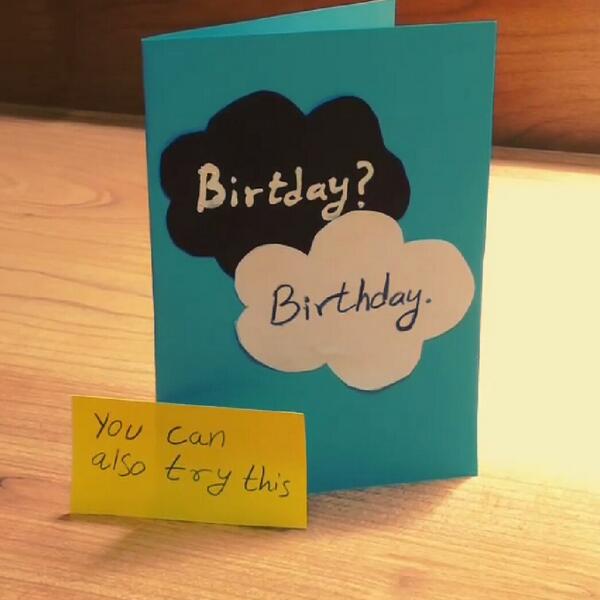 Birtday?
Birthday.
You can
also try this